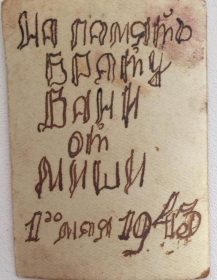 на память
брату
Вани
от
Миши
1го мая 1943